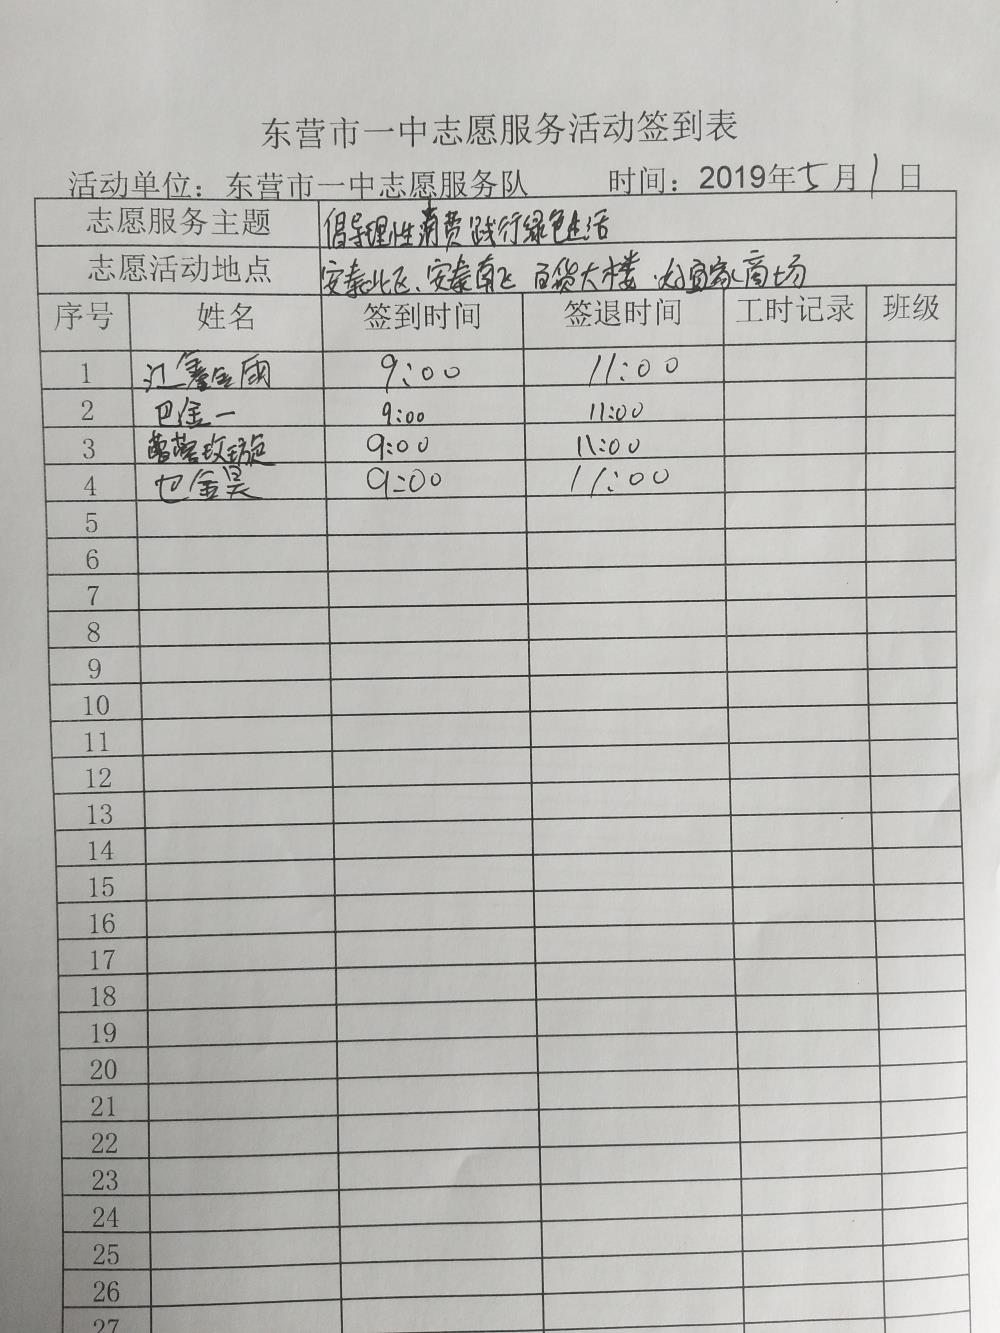 东营市一中志愿服务活动签到表
活动单位：东营市一中志愿服务队 时间：2019年5月1日
志愿服务主题 倡导理性消费践行绿色生活
志愿活动地点 安泰北区、安泰南区 百货大楼 家商场
序号 姓名 签到时间 签退时间 工时记录 班级
1 9:00 11:00
2 巴金一 9:00 11:00
3 9:00 11:00
4 巴金昊 9:00 11:00
5
6
7
8
9
10
11
12
13
14
15
16
17
18
19
20
21
22
23
24
25
26
27